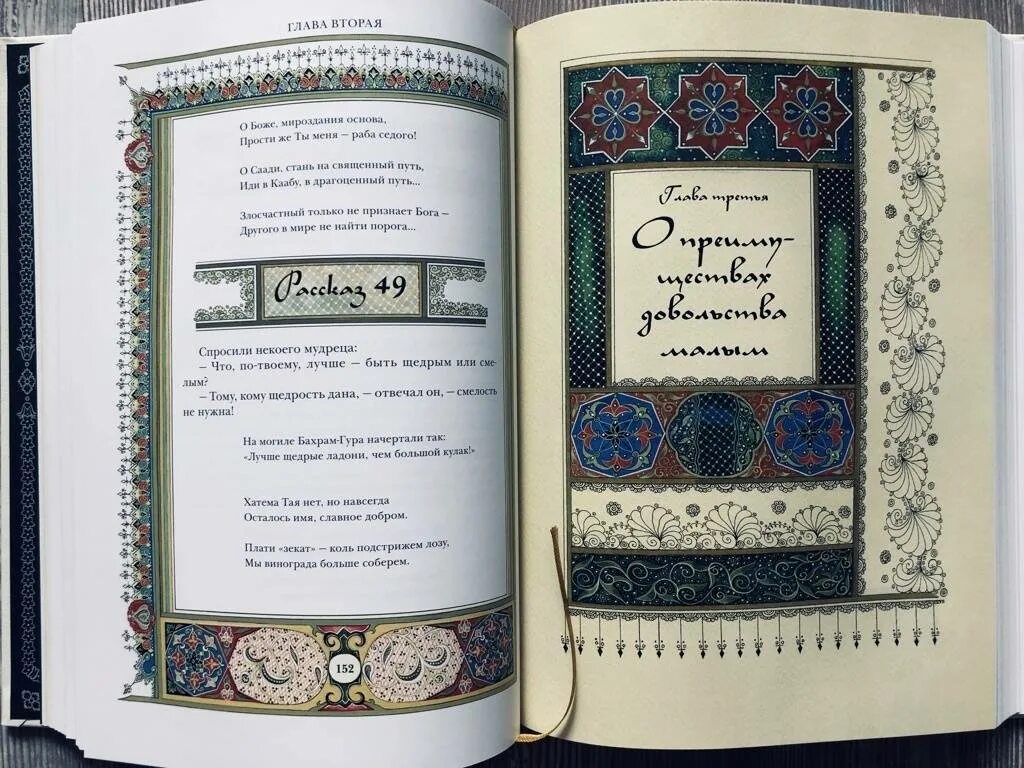 ГЛАВА ВТОРАЯ
О Боже, мироздания основа,
Прости же Ты меня – раба седого!
О Саади, стань на священный путь,
Иди в Каабу, в драгоценный путь...
Злосчастный только не признает Бога –
Другого в мире не найти порога...
Рассказ 49
Спросили некоего мудреца:
– Что, по-твоему, лучше – быть щедрым или сме-
лым?
– Тому, кому щедрость дана, – отвечал он, – смелость
не нужна!
На могиле Бахрам-Гура начертали так:
«Лучше щедрые ладони, чем большой кулак!»
Хатема Тая нет, но навсегда
Осталось имя, славное добром.
Плати «зекат» – коль подстрижем лозу,
Мы винограда больше соберем.
152
Глава третья
О преиму-
ществах
довольства
малым